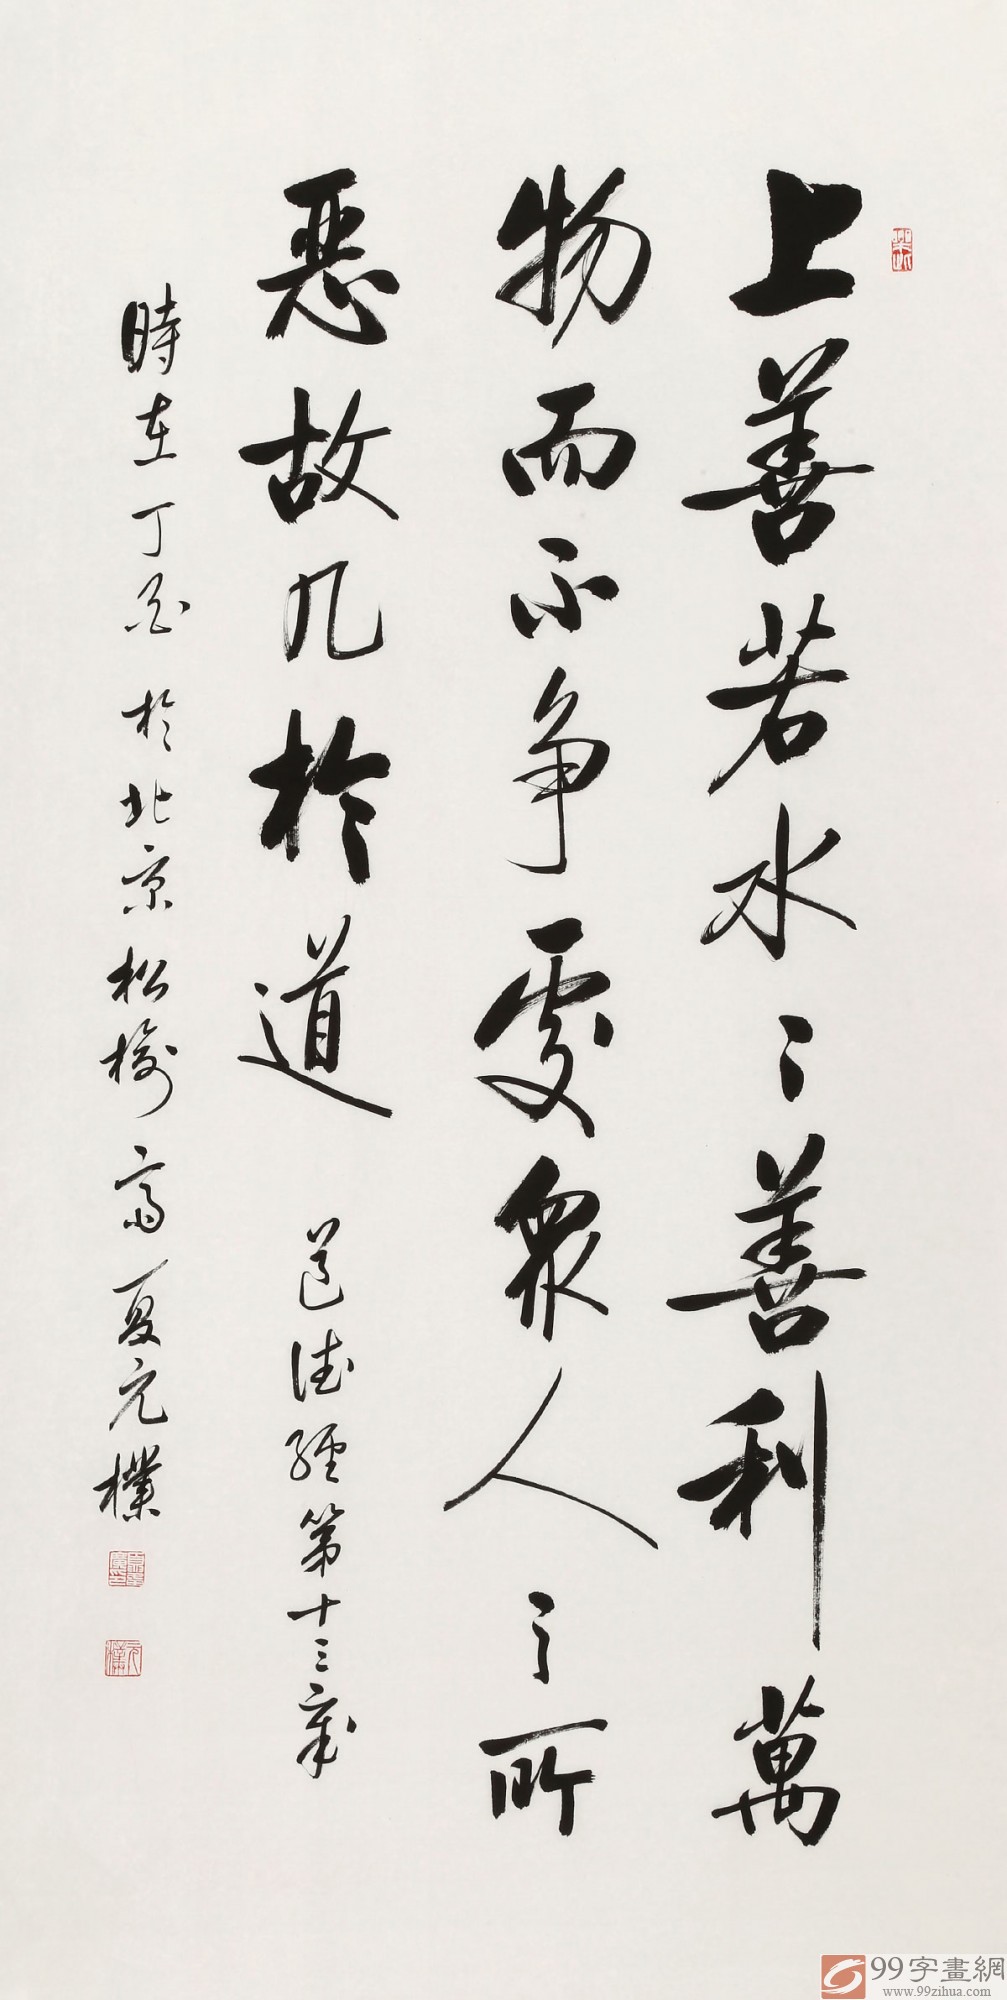 上善若水〻善利萬
物而不争處衆人之所
惡故几於道
道德經第十二章
時在丁酉於北京松榆齋夏元樸
元樸
99字畫網
www.99zihua.com